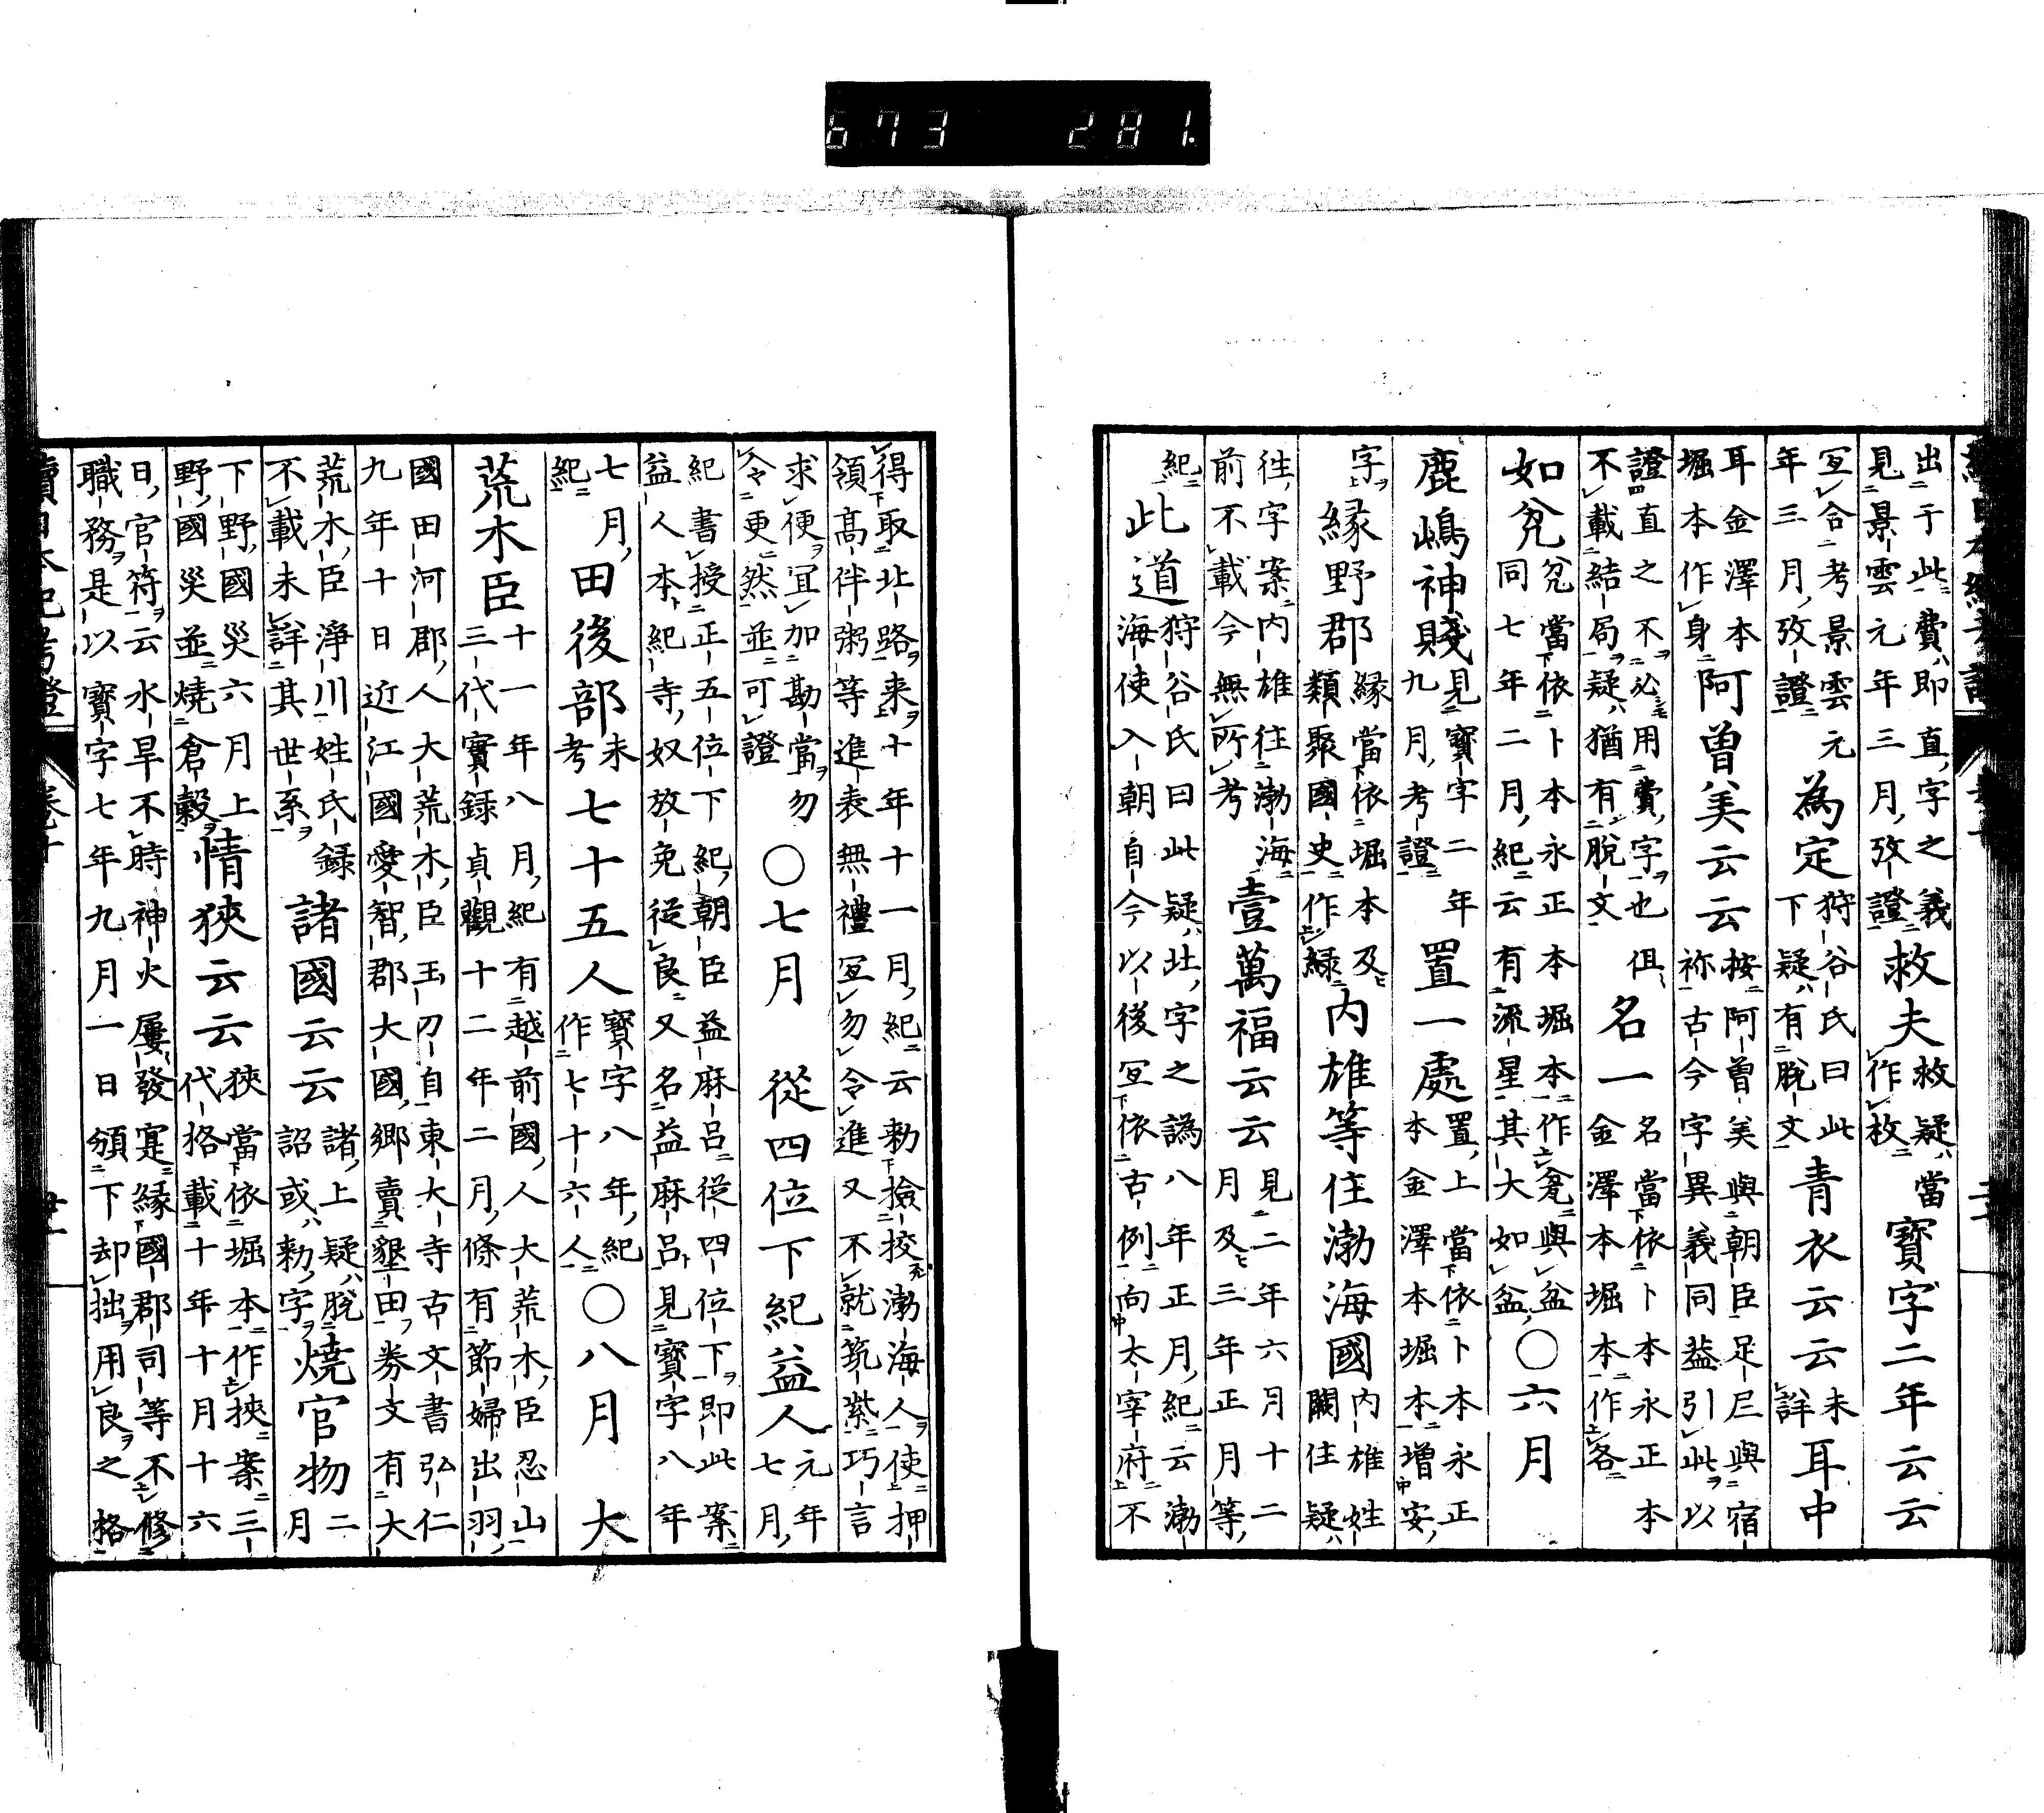 673 281
出于此費ハ即直字之義
見景雲元年三月攷證
救夫
救疑ハ當
作枚
寶字二年云云
宜合考景雲元
年三月攷證
為定
狩谷氏曰此
下疑ハ有脫文
青衣云云
未
詳
耳中
耳金澤本
堀本作身
阿曽美云云
按阿曽美與朝臣足尼與宿
祢古今字異義同葢引此以
證直之不必用費字也
不載結局疑ハ猶有脫文
名一
名當依卜本永正本
金澤本堀本作各
如兊
兊當依卜本永正本堀本作瓫與盆
同七年二月紀云有流星其大如盆
○六月
鹿嶋神賤
見寶字二年
九月考證
置一處
置上當依卜本永正
本金澤本堀本增安
字
緣野郡
緣當依堀本及
類聚國史作綠
内雄等住渤海國
内雄姓
闕住疑ハ
往字案内雄往渤海
前不載今無所考
壹萬福云云
見二年六月十二
月及三年正月等
紀
此道
狩谷氏曰此疑ハ北字之譌八年正月紀云渤
海使入朝自今以後宜依古例向太宰府不
得取北路来十年十一月紀云勅撿挍渤海人使押
領髙伴粥等進表無禮宜勿令進又不就筑紫巧言
求便宜加勘當勿
令更然並可證
○七月　從四位下紀益人
元年
七月
紀書授正五位下紀朝臣益麻呂從四位下即此案
益人本紀寺奴放免從良又名益麻呂見寶字八年
七月
紀
田後部
未
考
七十五人
寶字八年紀
作七十六人
○八月　大
荒木臣
十一年八月紀有越前國人大荒木臣忍山
三代實録貞觀十二年二月條有節婦出羽
國田河郡人大荒木臣玉刀自東大寺古文書弘仁
九年十日近江國愛智郡大國鄉賣墾田券文有大
荒木臣淨川姓氏録
不載未詳其世系
諸國云云
諸上疑ハ脫
詔或ハ勅字
燒官物
二
月
下野國災六月上
野國災並燒倉穀
情狹云云
狹當依堀本作挾案三
代格載十年十月十六
日官符云水旱不時神火屢發寔緣國郡司等不修
職務是以寶字七年九月一日頒下却拙用良之格